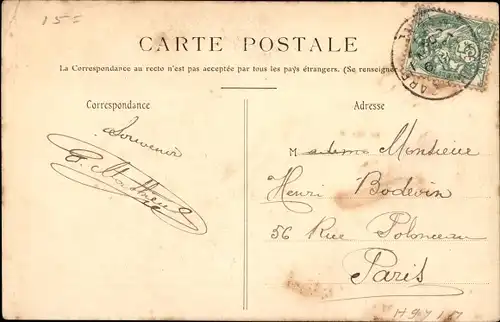 15=
CARTE POSTALE
La Correspondance au recto n'est pas acceptée par tous les pays étrangers. (Se renseigner
Correspondance
Adresse
Souvenir
M adame Monsieur
Henri Bodevin
56 Rue Polonceau
Paris